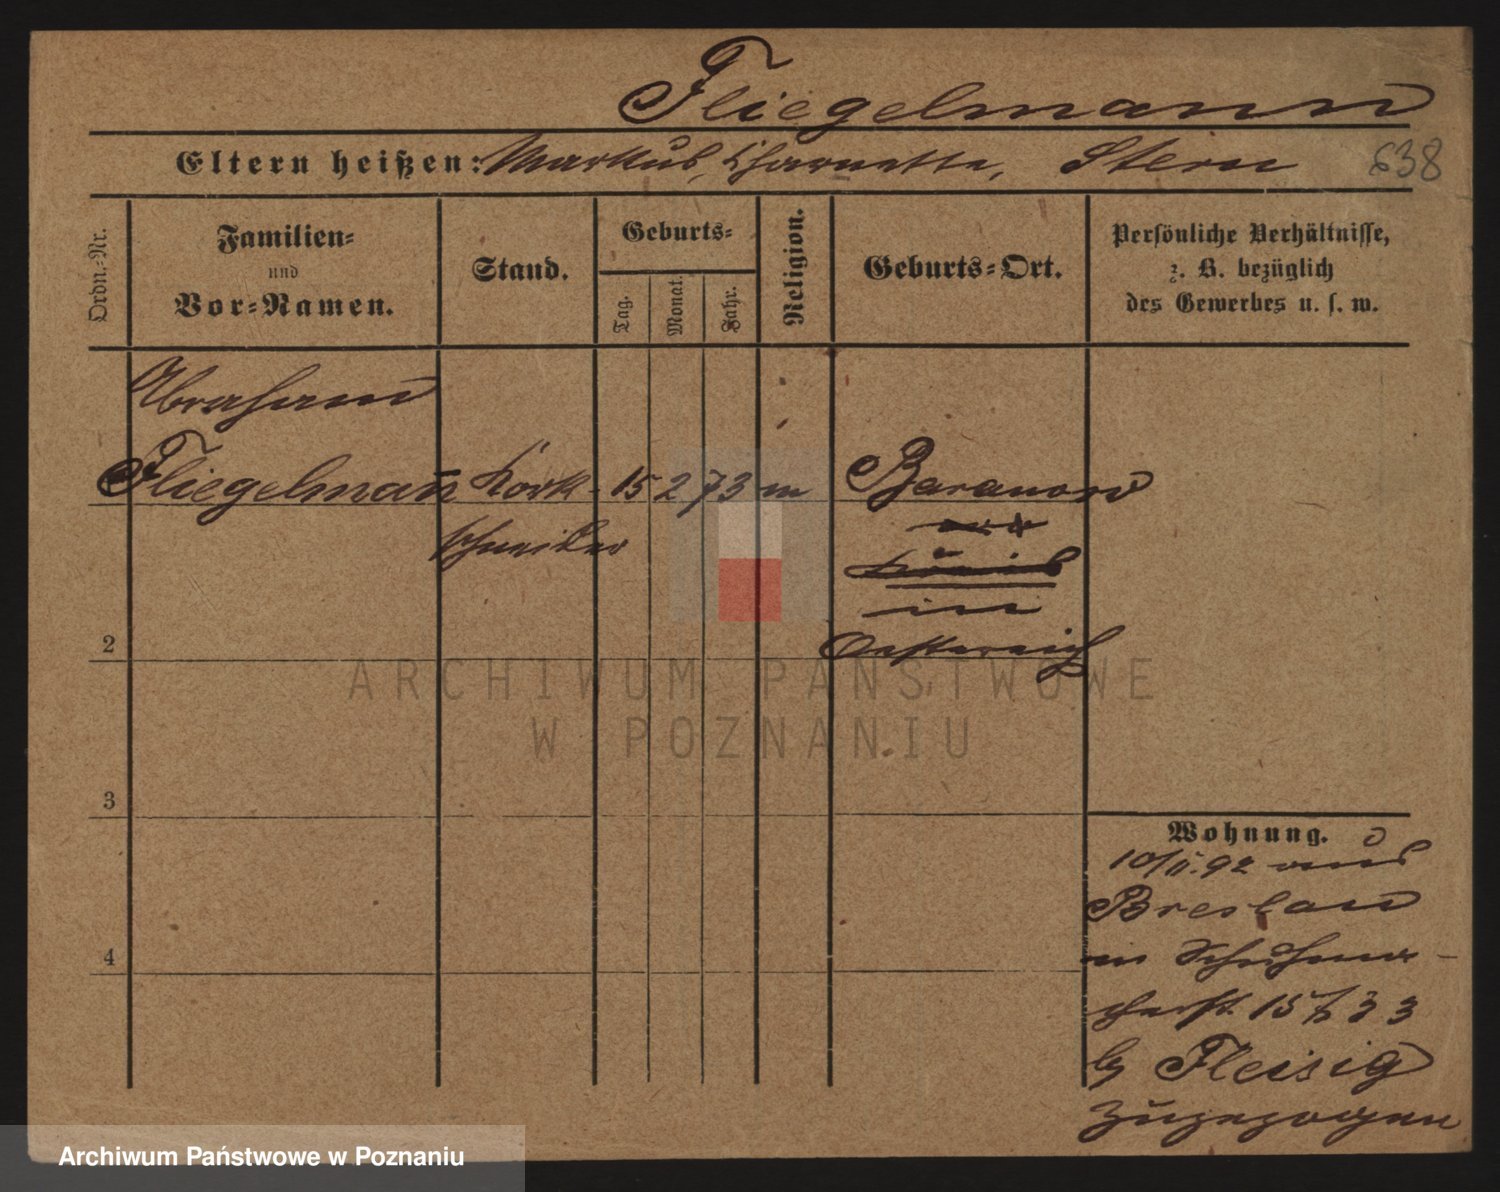 Fliegelmann
Eltern heißen: Markus, Stern
638
Ordn.-Nr.
Familien-
und
Vor-Namen.
Stand.
Geburts-
Tag.
Monat.
Jahr.
Religion.
Geburts-Ort.
Persönliche Verhältnisse,
z. B. bezüglich
des Gewerbes u. s. w.
Abraham
Fliegelman̄ Kork- 15 2 73 m Baranow
schneider
in
Oesterreich
2
3
4
Wohnung.
10/II. 92 aus
Breslau
in Schuhma-
cherst. 15
b/ Fleisig
zugezogen
ARCHIWUM PAŃSTWOWE
W POZNANIU
Archiwum Państwowe w Poznaniu